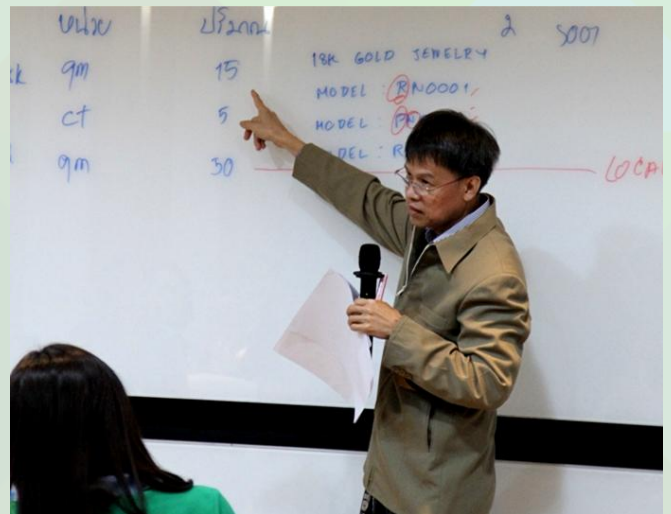 หน่วย ปริมาณ
gm 15
ct 5
gm 30
2
18K GOLD JEWELRY
MODEL : RN0001
MODEL : PN
MODEL : R
LOCAL